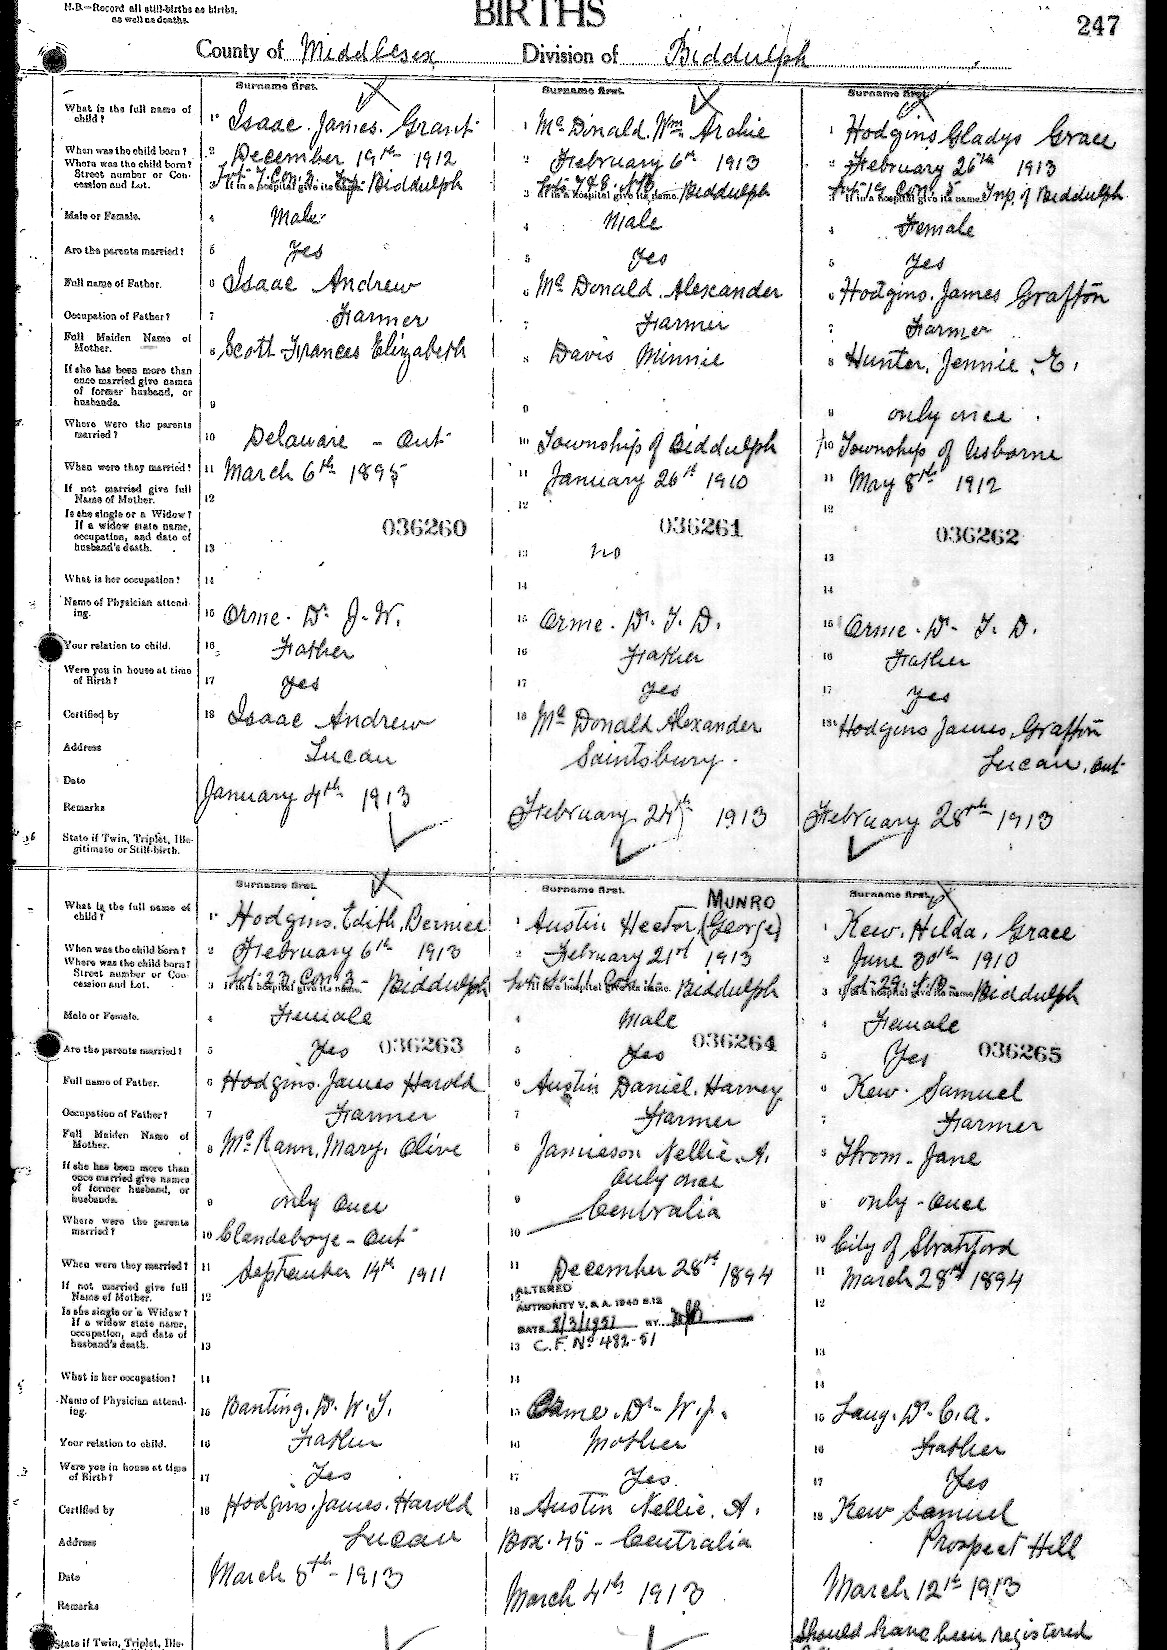 N.B.—Record all still-births as births,
as well as deaths.
BIRTHS
247
County of Middlesex Division of Biddulph
Surname first.
Surname first.
Surname first.
What is the full name of child? 1 Isaac. James. Grant 1 Mc Donald. Wm Archie 1 Hodgins Gladys Grace
When was the child born? 2 December 19th 1912 2 February 6th 1913 2 February 26th 1913
Where was the child born? Street number or Concession and Lot. 3 If in a hospital give its name. Lot 7. Con. 3. Twp. Biddulph 3 If in a hospital give its name. Biddulph 3 If in a hospital give its name. Lot 19 Con. 5 Twp. of Biddulph
Male or Female. 4 Male 4 Male 4 Female
Are the parents married? 5 Yes 5 Yes 5 Yes
Full name of Father. 6 Isaac Andrew 6 Mc Donald. Alexander 6 Hodgins. James Grafton
Occupation of Father? 7 Farmer 7 Farmer 7 Farmer
Full Maiden Name of Mother. 8 Scott Frances Elizabeth 8 Davis Minnie 8 Hunter, Jennie. E.
If she has been more than once married give names of former husband, or husbands. 9 9 9 only once.
Where were the parents married? 10 Delaware - Ont 10 Township of Biddulph 10 Township of Usborne
When were they married? 11 March 6th 1895 11 January 26th 1910 11 May 8th 1912
If not married give full Name of Mother. 12 12 12
036260 036261 036262
Is she single or a Widow? If a widow state name, occupation, and date of husband's death. 13 13 no 13
What is her occupation? 14 14 14
Name of Physician attending. 15 Orme. Dr. J. W. 15 Orme. Dr. T. D. 15 Orme. Dr. T. D.
Your relation to child. 16 Father 16 Father 16 Father
Were you in house at time of Birth? 17 Yes 17 Yes 17 Yes
Certified by 18 Isaac Andrew 18 Mc Donald Alexander 18 Hodgins James Grafton
Address Lucan Saintsbury. Lucan, Ont
Date January 4th 1913 February 24th 1913 February 28th 1913
Remarks
State if Twin, Triplet, Illegitimate or Still-birth.
Surname first.
Surname first. MUNRO
Surname first.
What is the full name of child? 1 Hodgins. Edith. Bernice 1 Austin Hector (George) 1 Kew. Hilda. Grace
When was the child born? 2 February 6th 1913 2 February 21st 1913 2 June 30th 1910
Where was the child born? Street number or Concession and Lot. 3 If in a hospital give its name. Lot 23 Con. 3 - Biddulph 3 If in a hospital give its name. Biddulph 3 If in a hospital give its name. Biddulph
Male or Female. 4 Female 4 Male 4 Female
Are the parents married? 5 Yes 036263 5 Yes 036264 5 Yes 036265
Full name of Father. 6 Hodgins. James Harold 6 Austin Daniel. Harvey 6 Kew. Samuel
Occupation of Father? 7 Farmer 7 Farmer 7 Farmer
Full Maiden Name of Mother. 8 Mary. Olive 8 Jamieson Nellie. A. 8 Throm - Jane
If she has been more than once married give names of former husband, or husbands. 9 only Once 9 Only once 9 only - once
Where were the parents married? 10 Clandeboye - Ont 10 Centralia 10 City of Stratford
When were they married? 11 September 14th 1911 11 December 28th 1894 11 March 28th 1894
If not married give full Name of Mother. 12 12 ALTERED 12
Is she single or a Widow? If a widow state name, occupation, and date of husband's death. 13 AUTHORITY V. S. A. 1940 S.12
DATE 8/3/1951 BY
13 C.F. No 482-51 13
What is her occupation? 14 14 14
Name of Physician attending. 15 Banting. Dr. W. T. 15 Orme. Dr. W. J. 15 Lang. Dr. C. A.
Your relation to child. 16 Father 16 Mother 16 Father
Were you in house at time of Birth? 17 Yes 17 Yes 17 Yes
Certified by 18 Hodgins. James. Harold 18 Austin Nellie. A. 18 Kew Samuel
Address Lucan Box. 45 - Centralia Prospect Hill
Date March 8th - 1913 March 4th 1913 March 12th 1913
Remarks Should have been registered
State if Twin, Triplet, Ille-